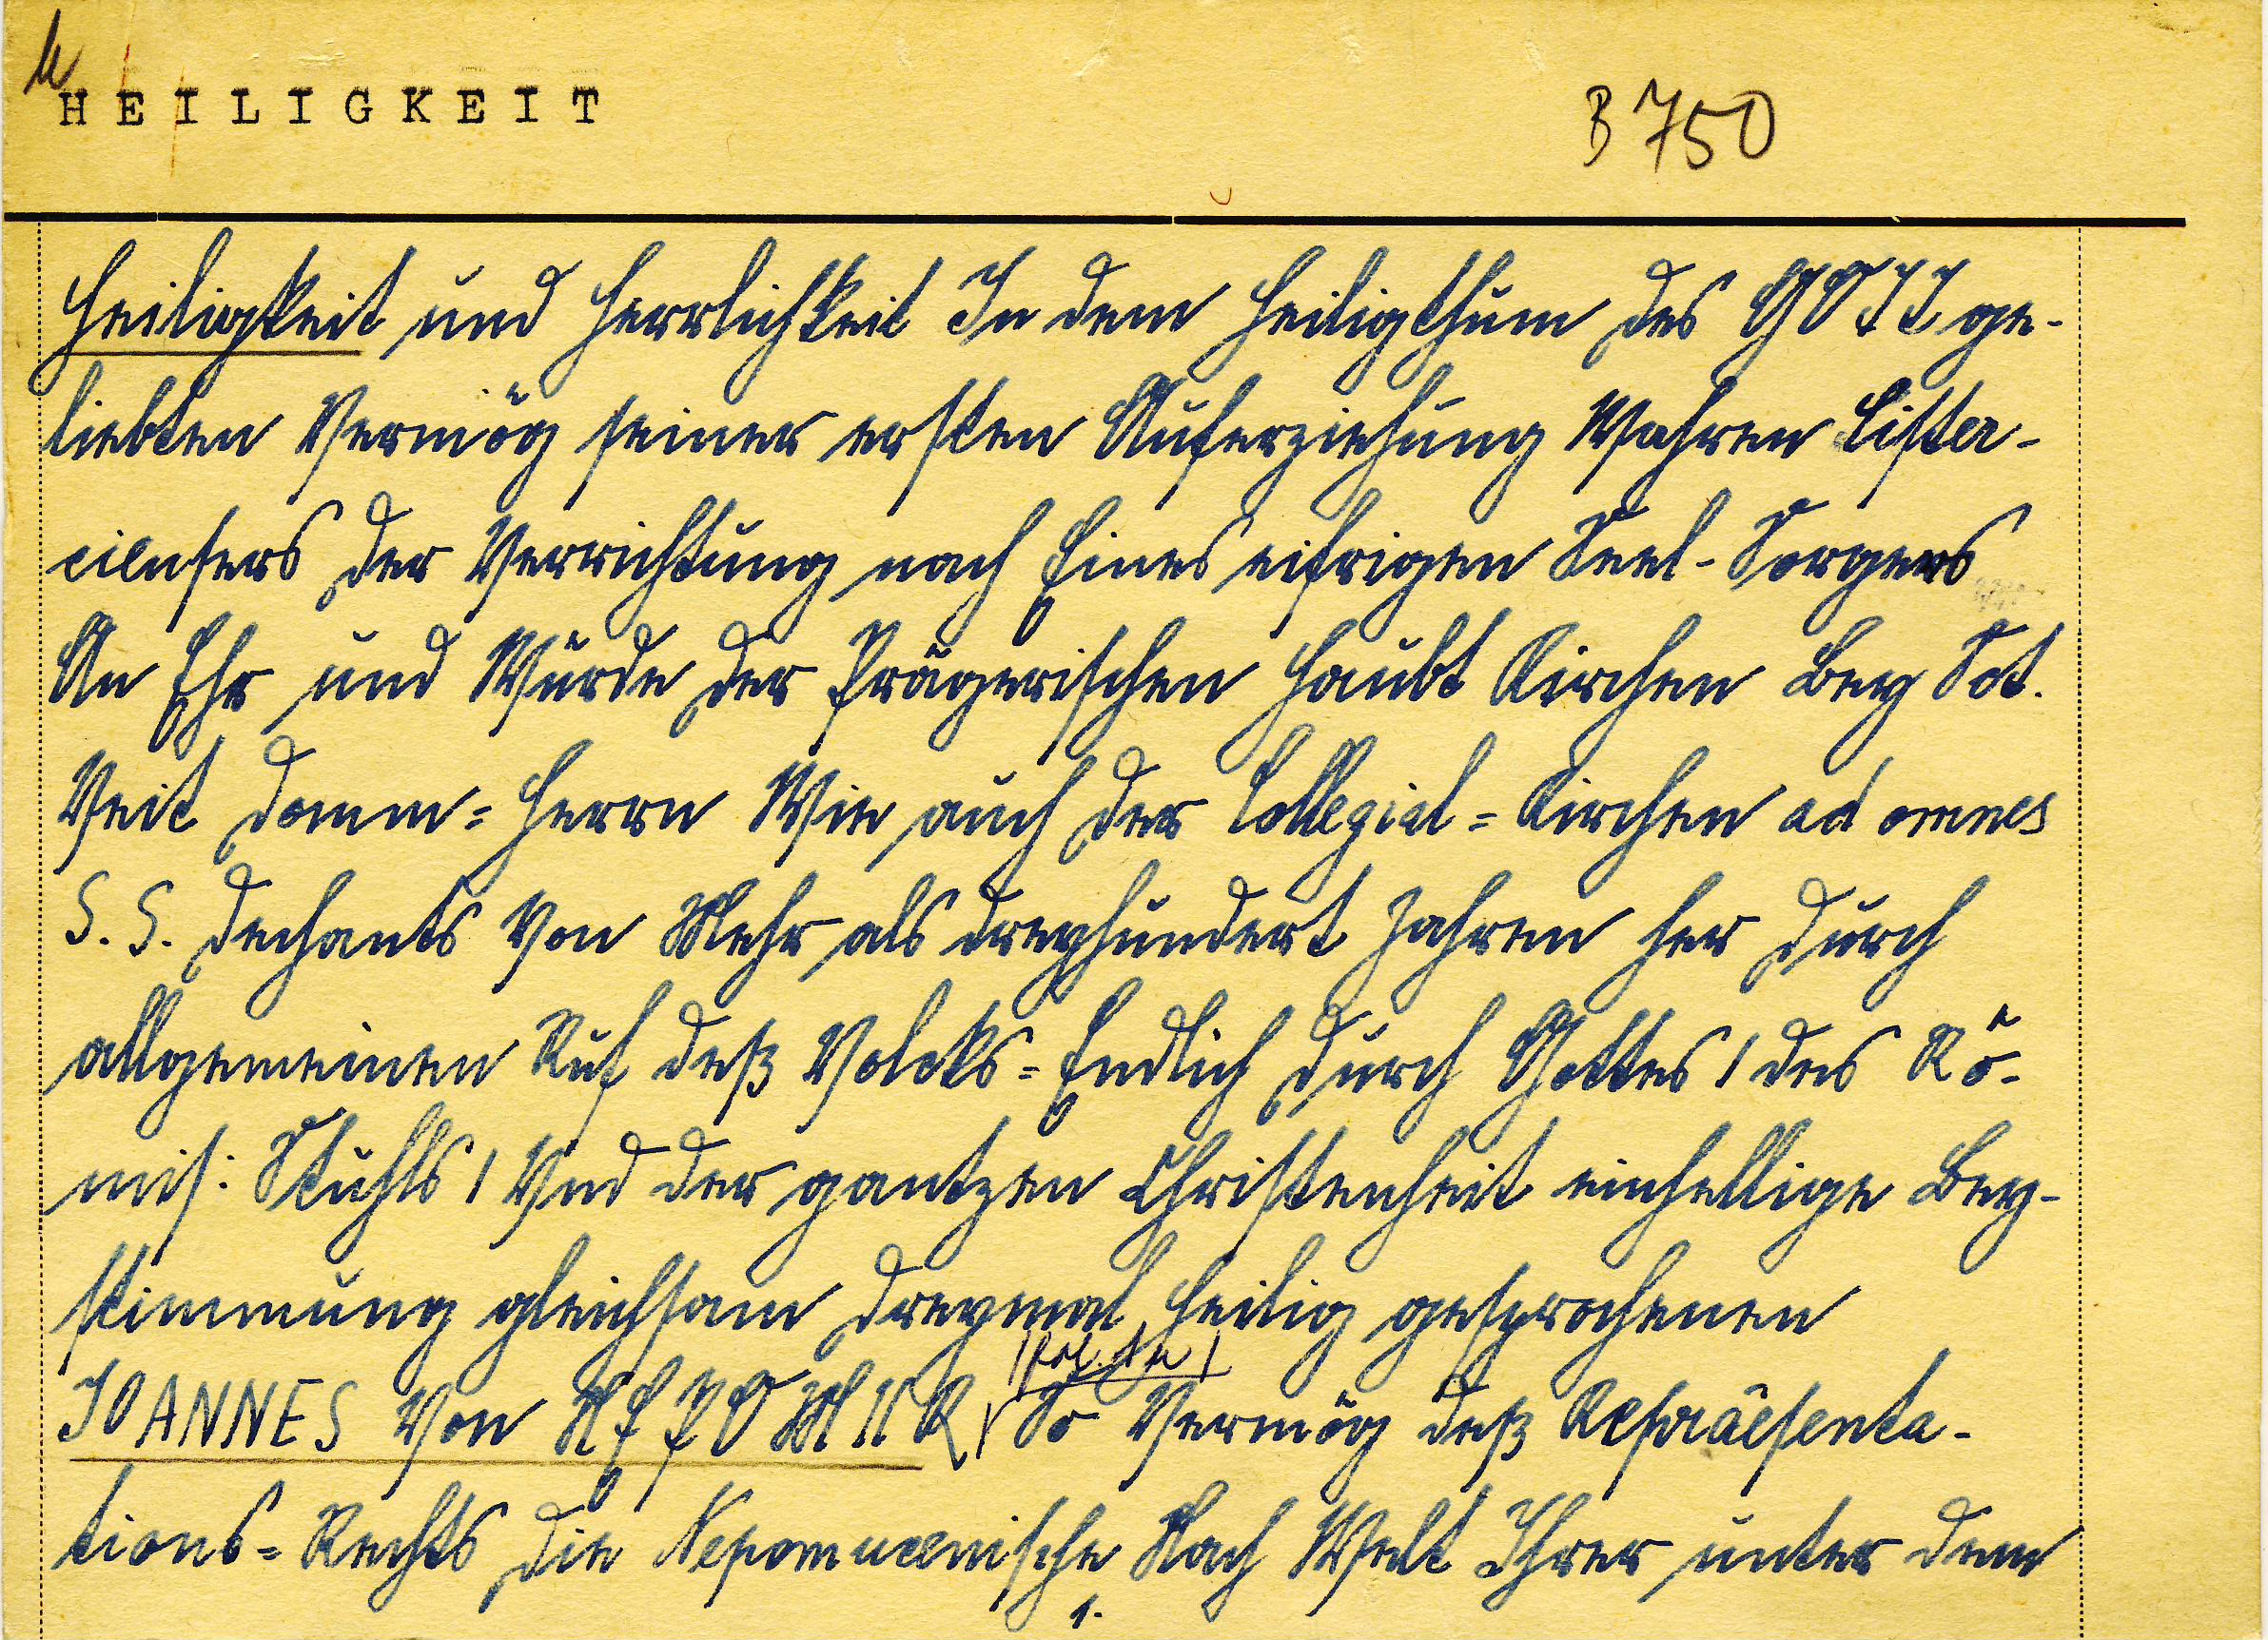 HEILIGKEIT
B 750
Heiligkeit und Herrlichkeit In dem Heiligthum des GOTT ge-
liebten Vermög seiner ersten Auferziehung Wahren Cister-
ciensers der Verrichtung nach Eines eifrigen Seel-Sorgers
An Ehr und Würde der Prägerischen Haubt Kirchen Bey Sct.
Veit Domm=Herrn Wie auch der Collegial=Kirchen ad omnes
S.S. Dechants Von Mehr als dreyhundert Jahren her Durch
allgemeinen Ruf deß Volcks=Endlich Durch Gottes / des Rö-
mis: Stuhls / Vnd der gantzen Christenheit einhellige Bey-
stimmung gleichsam Dreymal Heilig gesprochenen
JOANNES Von NEPOMUK / So Vermög deß Repräesenta-
tions=Rechts Die Nepomucenische Nach Welt Ihrer unter dem
1.